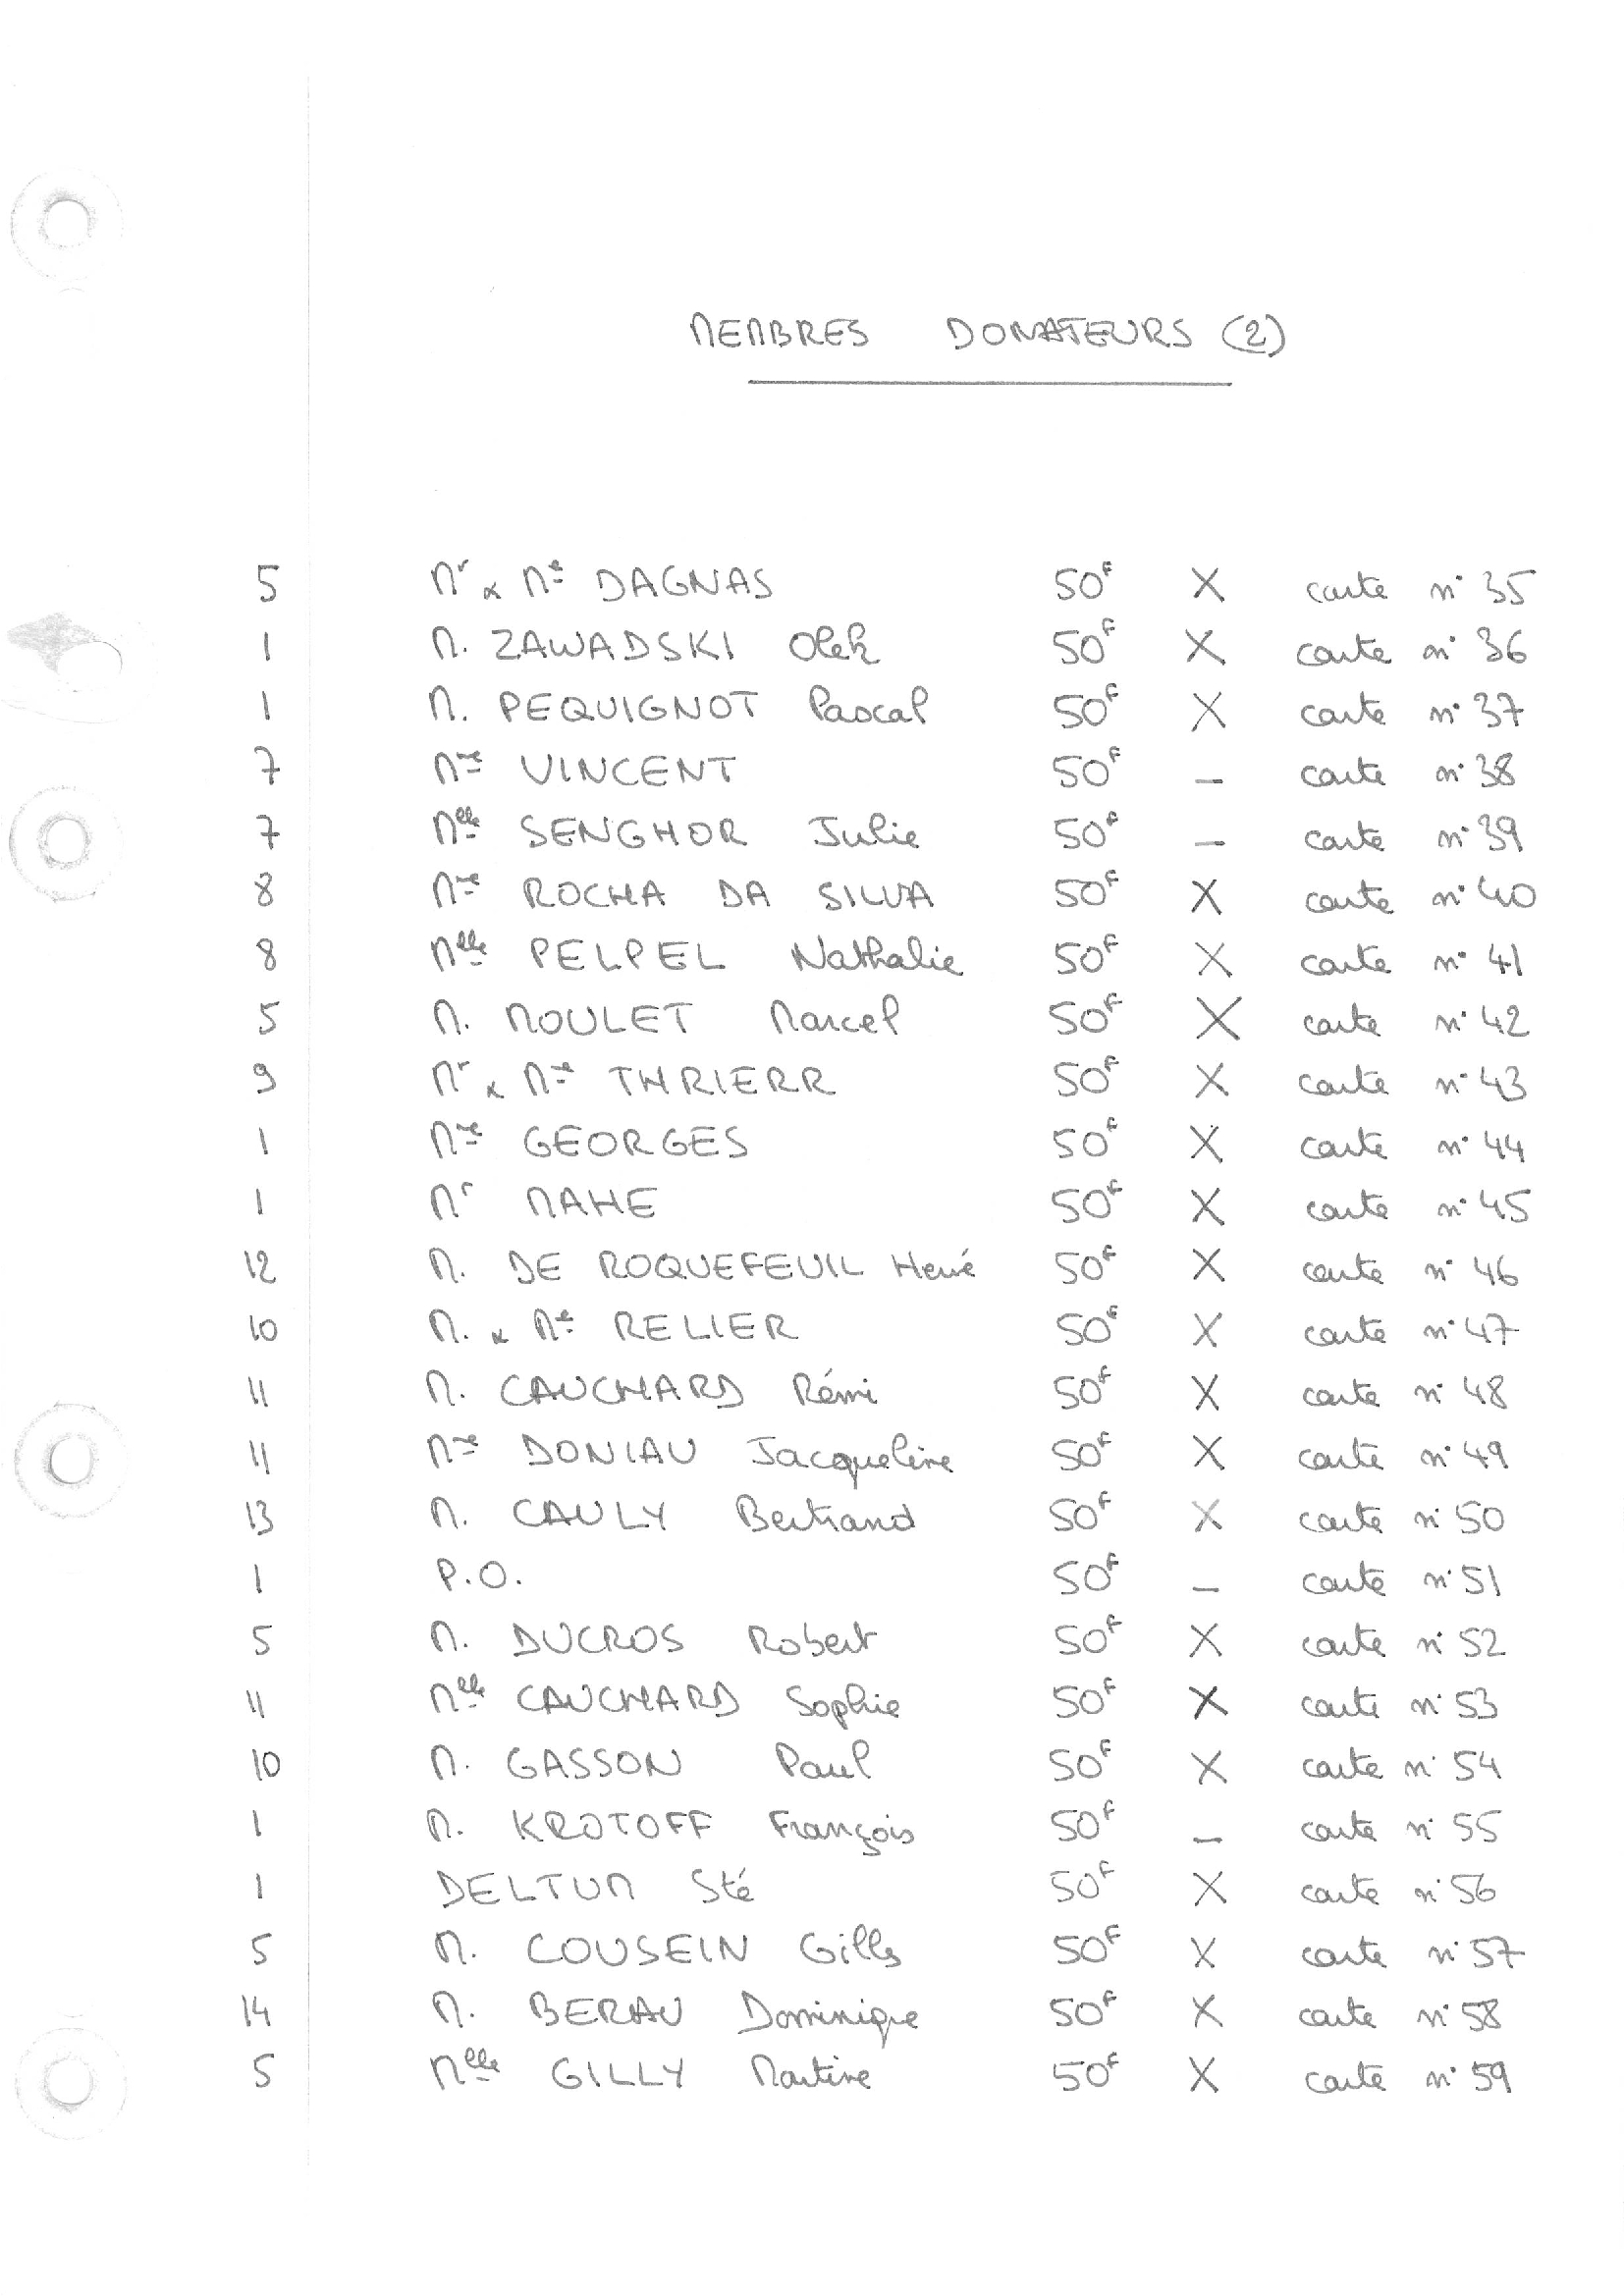 MEMBRES DONATEURS (2)
5 Mr & Me DAGNAS 50F X carte n° 35
1 M. ZAWADSKI Olek 50F X carte n° 36
1 M. PEQUIGNOT Pascal 50F X carte n° 37
7 Mme VINCENT 50F – carte n° 38
7 Mlle SENGHOR Julie 50F – carte n° 39
8 Mme ROCHA DA SILVA 50F X carte n° 40
8 Mlle PELPEL Nathalie 50F X carte n° 41
5 M. MOULET Marcel 50F X carte n° 42
9 Mr & Me THRIERR 50F X carte n° 43
1 Mme GEORGES 50F X carte n° 44
1 Mr MAHE 50F X carte n° 45
12 M. DE ROQUEFEUIL Hervé 50F X carte n° 46
10 M. & Me RELIER 50F X carte n° 47
11 M. CAUCHARD Rémi 50F X carte n° 48
11 Mme DONIAU Jacqueline 50F X carte n° 49
13 M. CAULY Bertrand 50F X carte n° 50
1 P.O. 50F – carte n° 51
5 M. DUCROS Robert 50F X carte n° 52
11 Mlle CAUCHARD Sophie 50F X carte n° 53
10 M. GASSON Paul 50F X carte n° 54
1 M. KROTOFF François 50F – carte n° 55
1 DELTUM Sté 50F X carte n° 56
5 M. COUSEIN Gilles 50F X carte n° 57
14 M. BERAU Dominique 50F X carte n° 58
5 Mlle GILLY Martine 50F X carte n° 59